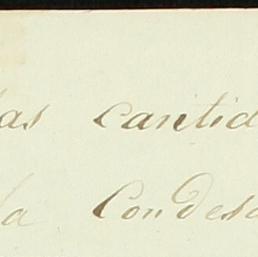 as cantid
la Condes